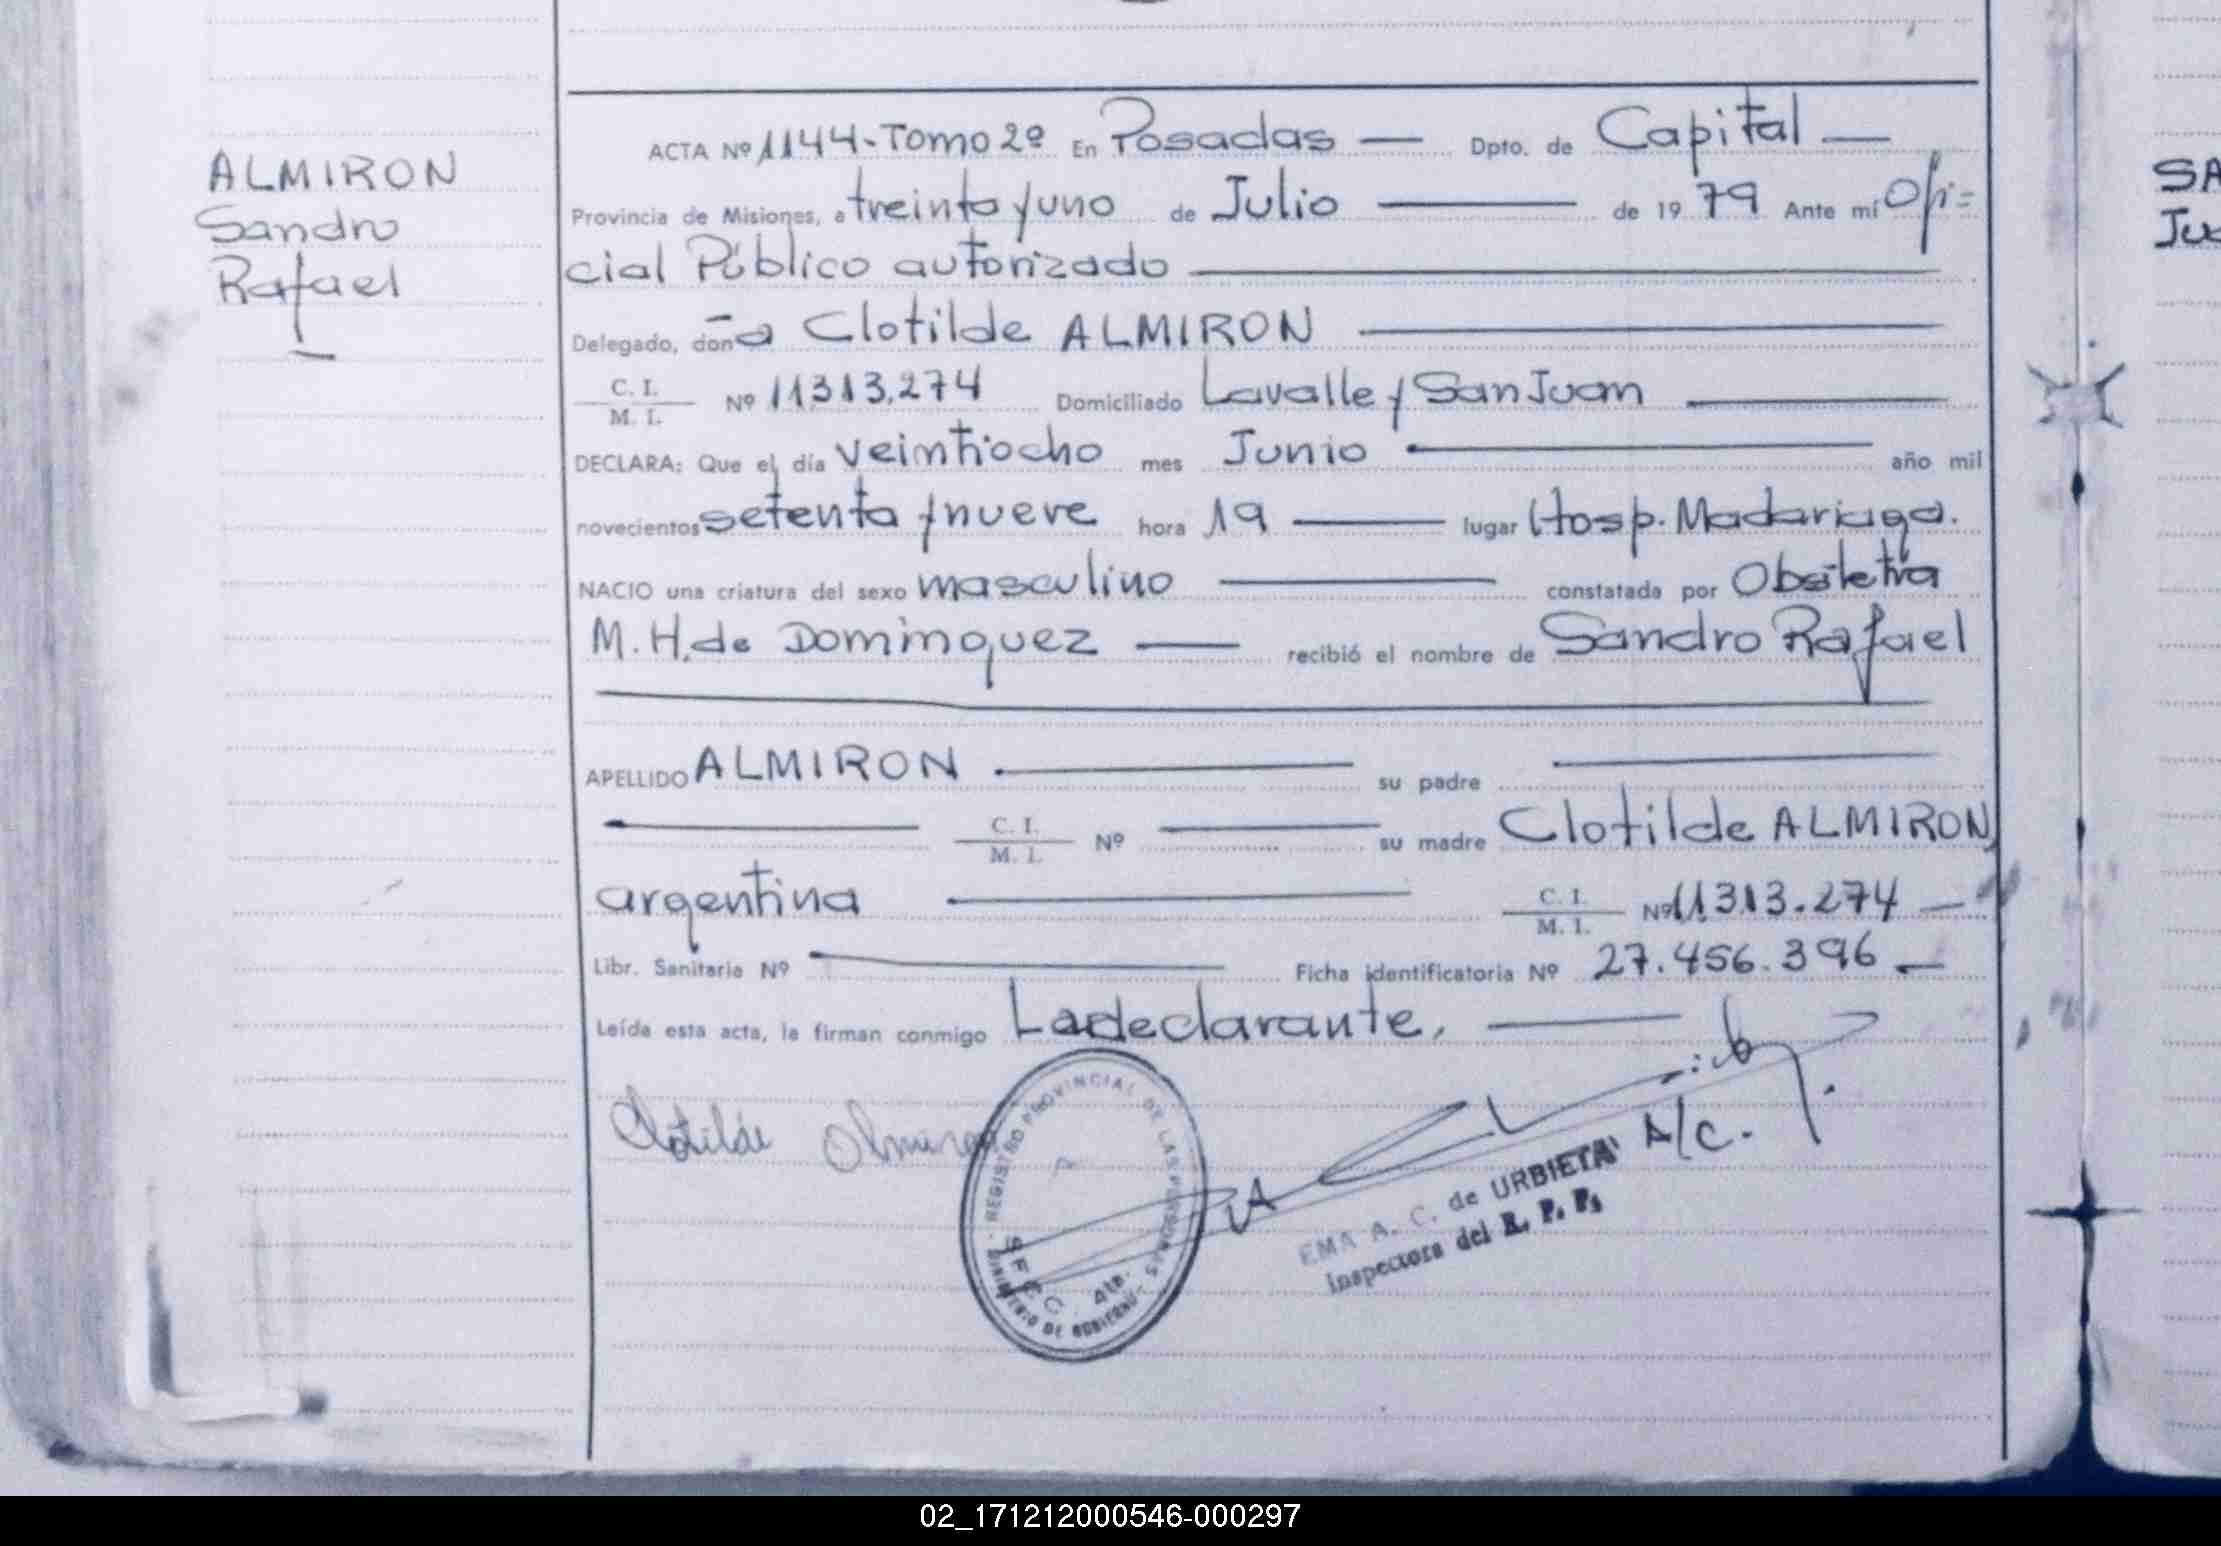 ALMIRON
Sandro
Rafael
ACTA Nº 1144-Tomo 2º En Posadas — Dpto. de Capital —
Provincia de Misiones, a treinta y uno de Julio — de 1979 Ante mí Ofi=
cial Público autorizado —
Delegado, doña Clotilde ALMIRON —
C. I.
M. I. Nº 11313.274 Domiciliado Lavalle y San Juan —
DECLARA: Que el día veintiocho mes Junio — año mil
novecientos setenta y nueve hora 19 — lugar Hosp. Madariaga.
NACIO una criatura del sexo masculino — constatada por Obstetra
M. H. de Dominguez — recibió el nombre de Sandro Rafael
APELLIDO ALMIRON — su padre —
— C. I.
M. I. Nº — su madre Clotilde ALMIRON,
argentina — C. I.
M. I. Nº 11313.274 —
Libr. Sanitaria Nº — Ficha identificatoria Nº 27.456.396 —
Leída esta acta, la firman conmigo La declarante. —
Clotilde Almiron
REGISTRO PROVINCIAL DE LAS PERSONAS
MINISTERIO DE GOBIERNO
SECC. 4ta.
A/C.
EMA A. C. de URBIETA
Inspectora del R. P. P.
SA
Ju
02_171212000546-000297